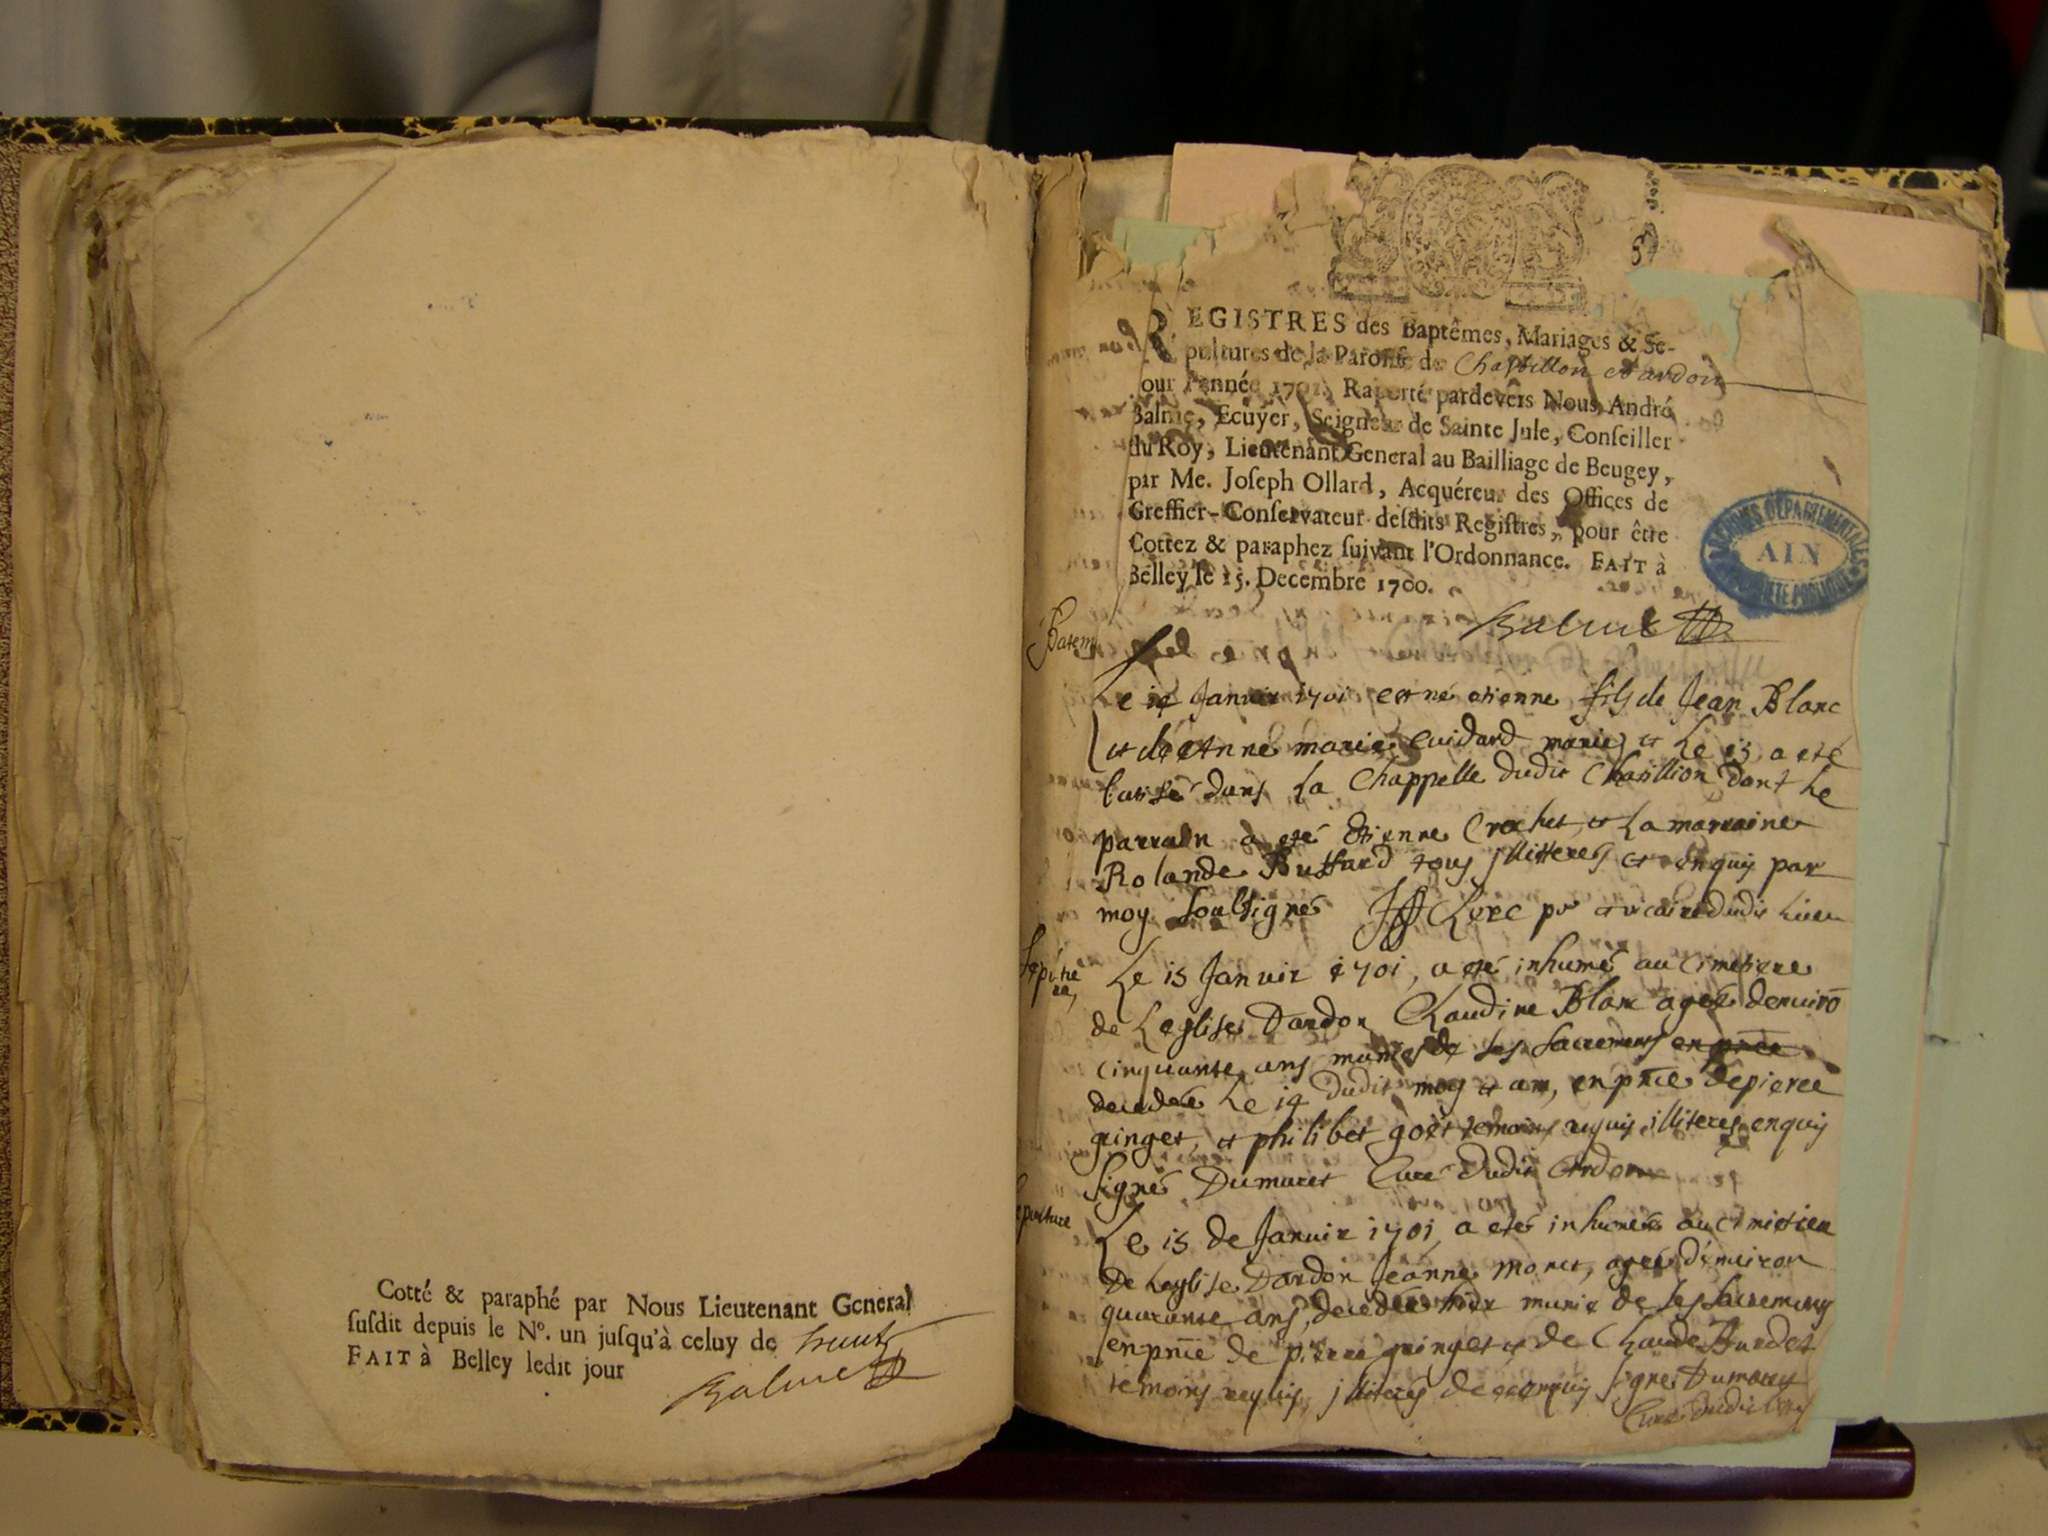 Cotté & paraphé par Nous Lieutenant General
ſuſdit depuis le N°. un juſqu'à celuy de
FAIT à Belley ledit jour
Balme
57
REGISTRES des Baptêmes, Mariages & Se-
pultures de la Paroiſſe de Chastillon et ardon
pour l'année 1701. Raporté pardevers Nous André
Balme, Ecuyer, Seigneur de Sainte Jule, Conſeiller
du Roy, Lieutenant General au Bailliage de Beugey,
par Me. Joſeph Ollard, Acquéreur des Offices de
Greffier-Conſervateur deſdits Regiſtres, pour être
Cottez & paraphez ſuivant l'Ordonnance. FAIT à
Belley le 15. Decembre 1700.
ARCHIVES DEPARTEMENTALES
AIN
Balme
Batem
Le 14 Janvir 1701 est né etienne fils de Jean Blanc
et de Anne marie Cuidard mariés et Le 15 a eté
batisé dans La Chappelle dudit Chastillion dont Le
parrain a eté Etienne Crochet et La marraine
Rolande Buffard tous illitterés et enquis par
moy soubsigné Clerc et vicaire dudit Lieu
Le 15 Janvir 1701, a eté inhumé au cimetiere
de Leglise Dardon Claudine Blanc agée denuirō
cinquante ans munie de ses sacremens
decedée Le 14 dudit moy et an, en pnce de pierre
ginget, et philibet goet temoins requis illiteres enquis
signé Dumaret Curé dudit Ardon
Sepulture
Le 15 de Janvir 1701 a eté inhumée au cimetiere
De Leglise Dardon Jeanne Moret, agée d'environ
quarante ans, decedée hier munie de ses sacremens
en pnce de pierre ginget et de Claude Burdet
temoins requis, illiterés de ce enquis signé Dumaret
Curé dudit